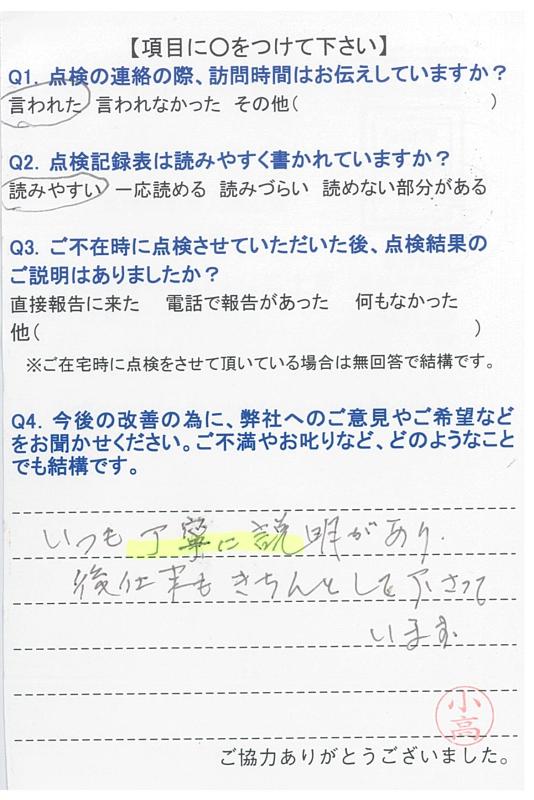 【項目に○をつけて下さい】
Q1. 点検の連絡の際、訪問時間はお伝えしていますか？
言われた 言われなかった その他(　　　　　　　)
Q2. 点検記録表は読みやすく書かれていますか？
読みやすい 一応読める 読みづらい 読めない部分がある
Q3. ご不在時に点検させていただいた後、点検結果の
ご説明はありましたか？
直接報告に来た　電話で報告があった　何もなかった
他(　　　　　　　　　　　　　　　)
※ご在宅時に点検をさせて頂いている場合は無回答で結構です。
Q4. 今後の改善の為に、弊社へのご意見やご希望など
をお聞かせください。ご不満やお叱りなど、どのようなこと
でも結構です。
いつも丁寧に説明があり.
後仕事もきちんとして下さって
います.
小高
ご協力ありがとうございました。